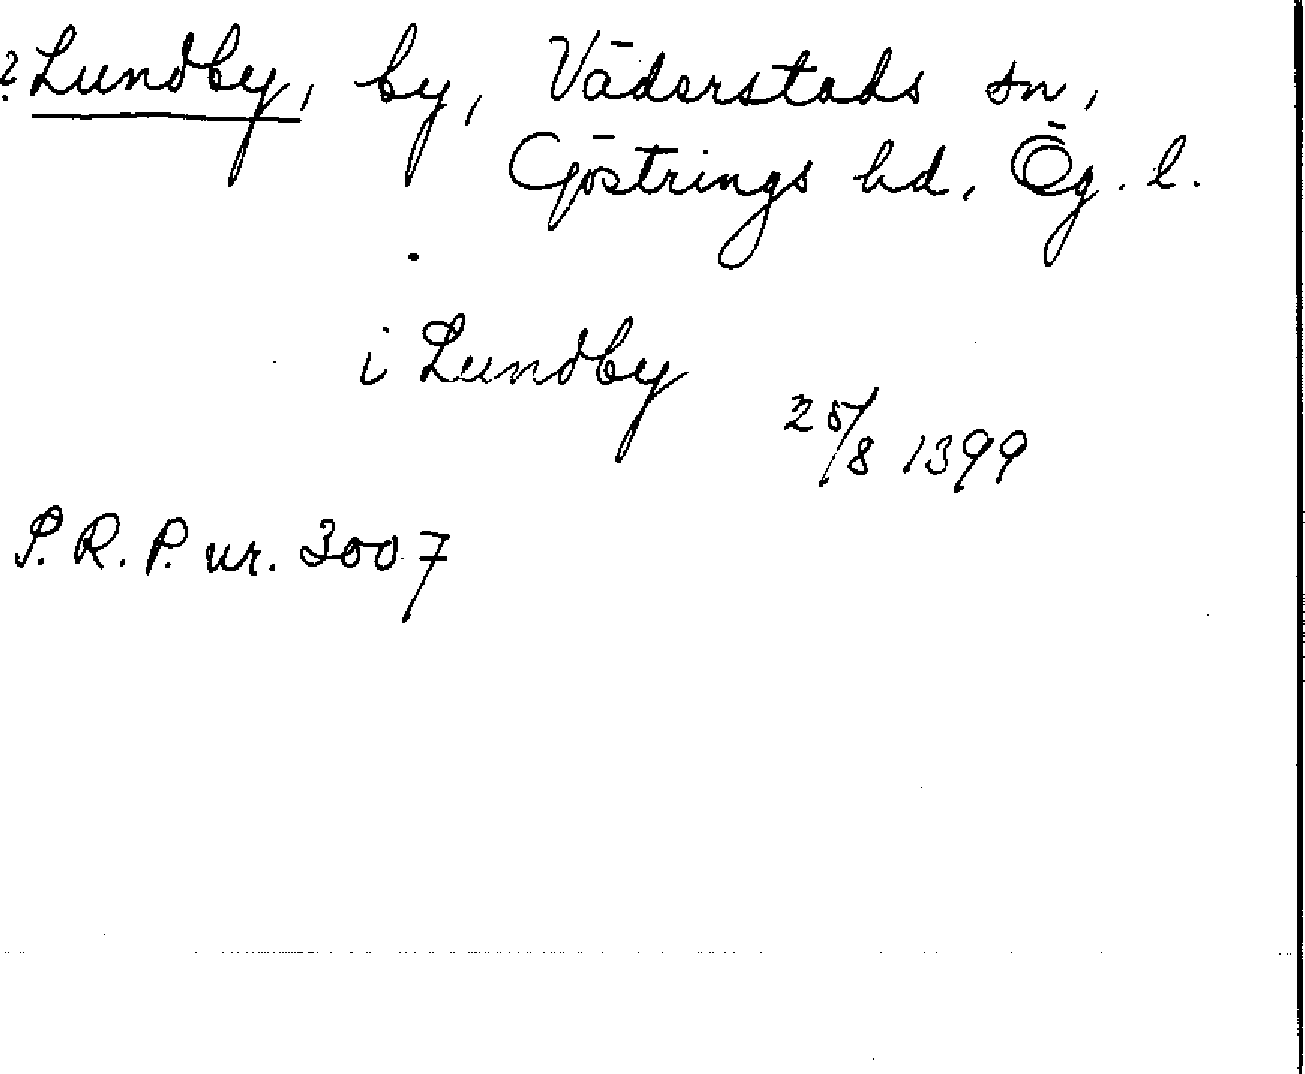 ? Lundby, by, Väderstads sn,
Göstrings hd, Ög. l.
i Lundby
25/8 1399
S. R. P. nr. 3007